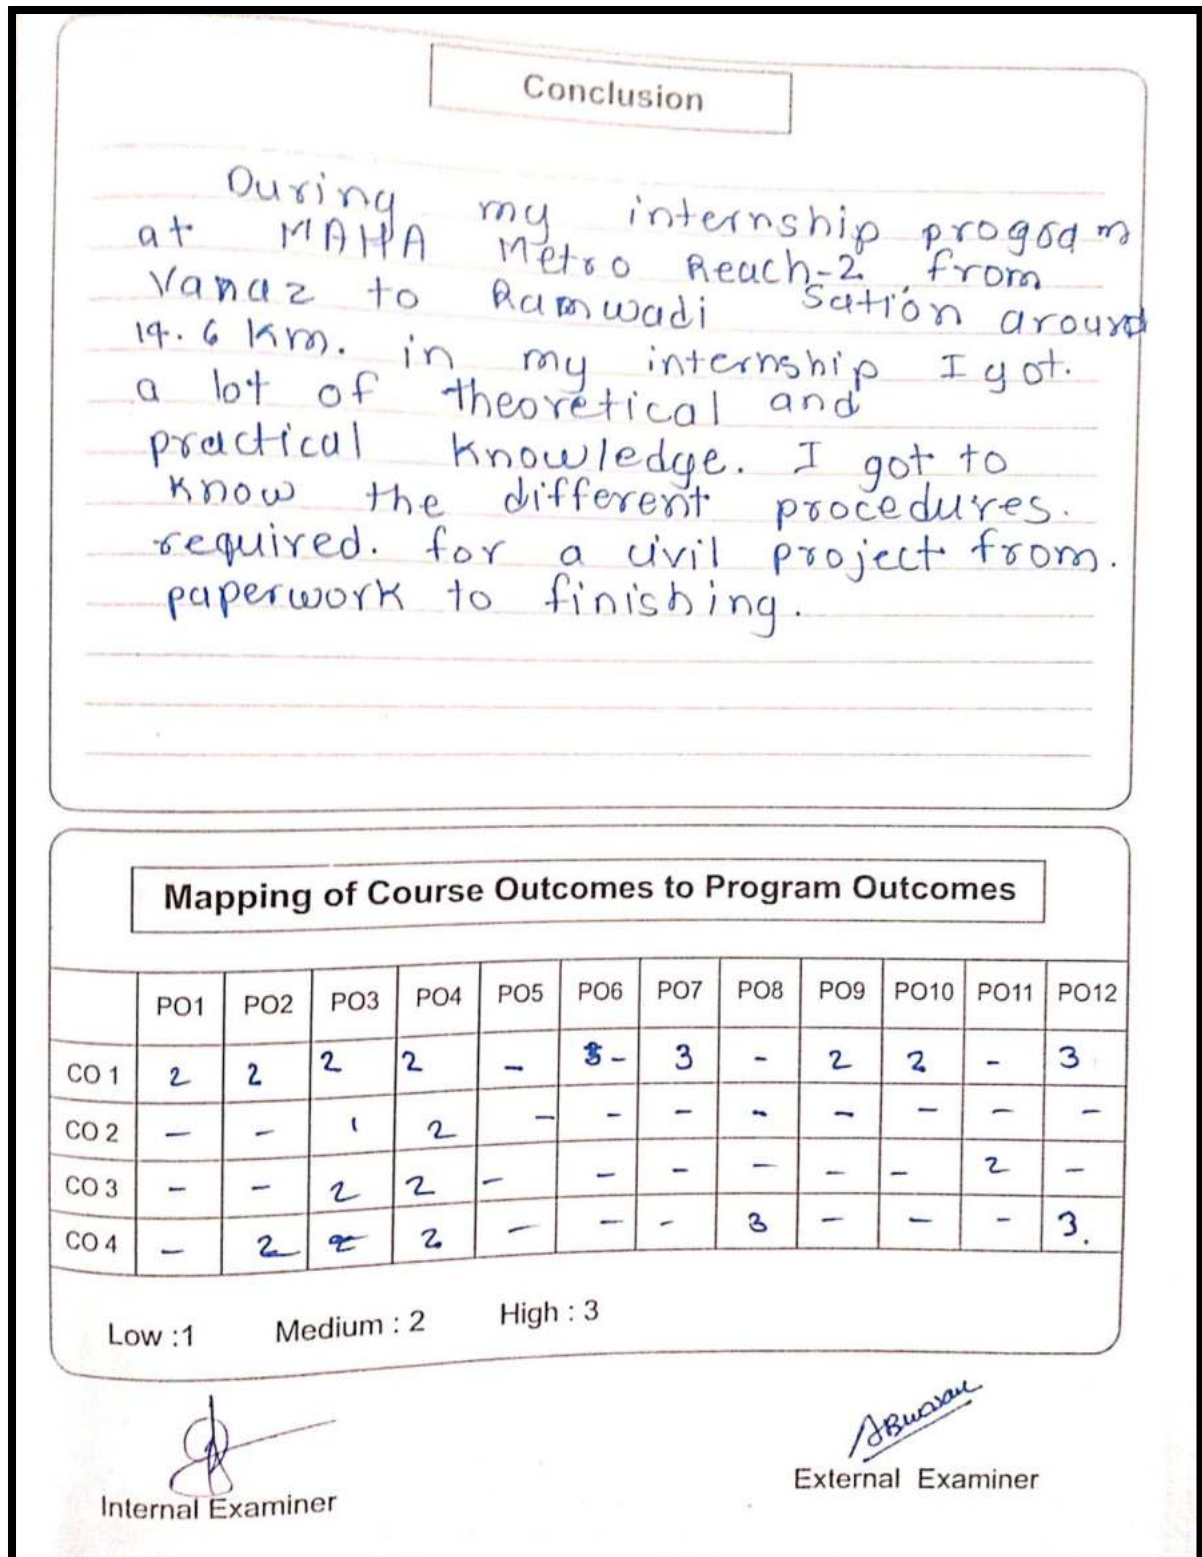 Conclusion
During my internship progrdm
at MAHA Metro Reach-2 from
Vanaz to Ramwadi Sation around
14.6 Km. in my internship I got.
a lot of theoretical and
practical Knowledge. I got to
Know the different procedures.
required. for a civil project from.
paperwork to finishing.
Mapping of Course Outcomes to Program Outcomes
PO1 PO2 PO3 PO4 PO5 PO6 PO7 PO8 PO9 PO10 PO11 PO12
CO 1 2 2 2 2 - - 3 - 2 2 - 3
CO 2 - - 1 2 - - - - - - - -
CO 3 - - 2 2 - - - - - - 2 -
CO 4 - 2 2 2 - - - 3 - - - 3.
Low :1 Medium : 2 High : 3
Internal Examiner
External Examiner